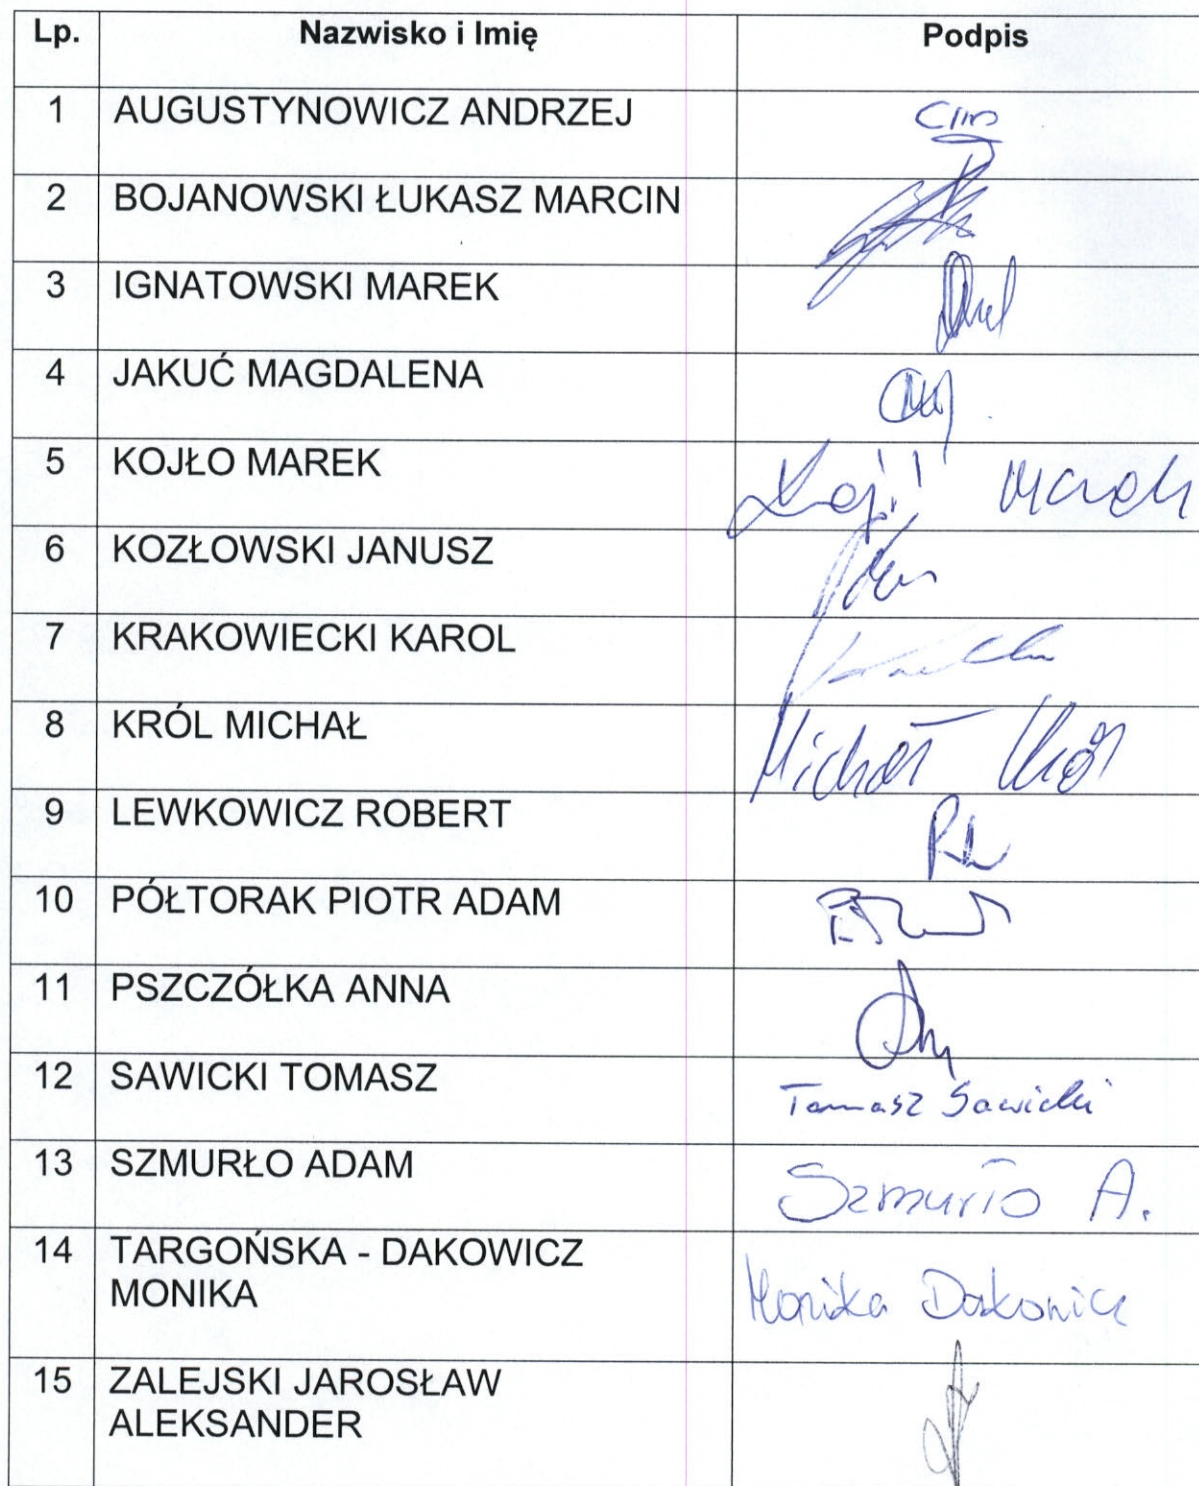 Lp. Nazwisko i Imię Podpis
1 AUGUSTYNOWICZ ANDRZEJ
2 BOJANOWSKI ŁUKASZ MARCIN
3 IGNATOWSKI MAREK
4 JAKUĆ MAGDALENA
5 KOJŁO MAREK Marek
6 KOZŁOWSKI JANUSZ
7 KRAKOWIECKI KAROL
8 KRÓL MICHAŁ Michał Król
9 LEWKOWICZ ROBERT
10 PÓŁTORAK PIOTR ADAM
11 PSZCZÓŁKA ANNA
12 SAWICKI TOMASZ Tomasz Sawicki
13 SZMURŁO ADAM Szmurło A.
14 TARGOŃSKA - DAKOWICZ
MONIKA Monika Dakowicz
15 ZALEJSKI JAROSŁAW
ALEKSANDER